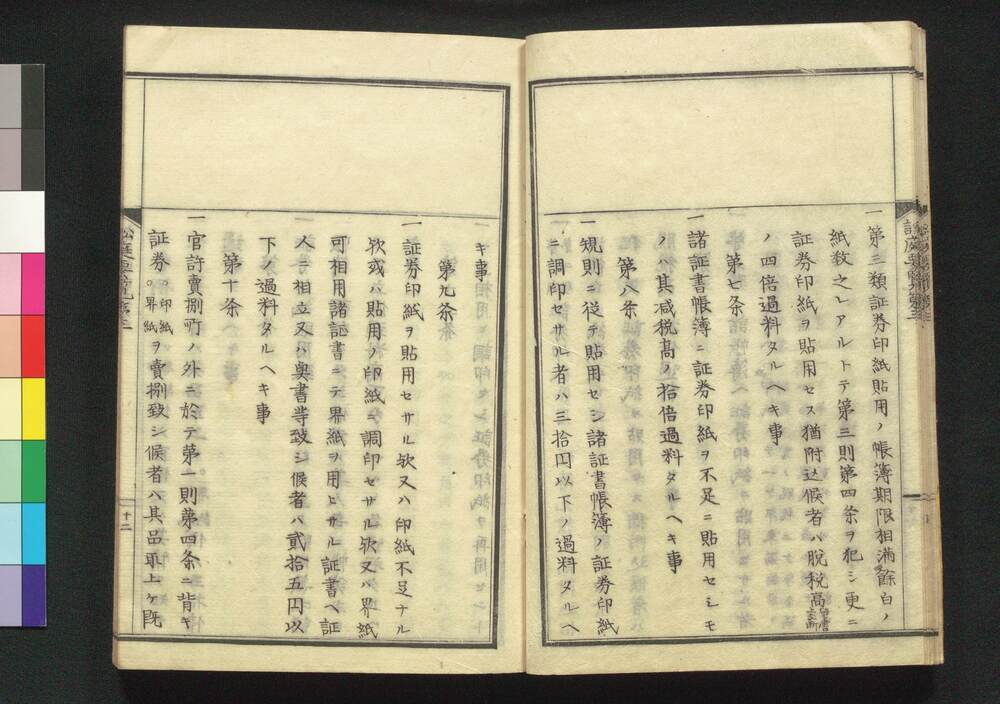 一第三類証券印紙貼用ノ帳簿期限相満餘白ノ
紙数之レアルトテ第三則第四条ヲ犯シ更ニ
証券印紙ヲ貼用セス猶附込候者ハ脱税高
ノ四倍過料タルヘキ事
第七条
一諸証書帳簿ニ証券印紙ヲ不足ニ貼用セシモ
ノハ其減税高ノ拾倍過料タルヘキ事
第八条
一規則ニ従テ貼用セシ諸証書帳簿ノ証券印紙
ニ調印セサル者ハ三拾円以下ノ過料タルヘ
キ事
第九条
一証券印紙ヲ貼用セサル欤又ハ印紙不足ナル
欤或ハ貼用ノ印紙ニ調印セサル欤又ハ界紙
可相用諸証書ニテ界紙ヲ用ヒサル証書ヘ証
人ニ相立又ハ奥書等致シ候者ハ貳拾五円以
下ノ過料タルヘキ事
第十条
一官許賣捌所ノ外ニ於テ第一則第四条ニ背キ
証券。印紙。界紙ヲ賣捌致シ候者ハ其品取上ケ既
十二